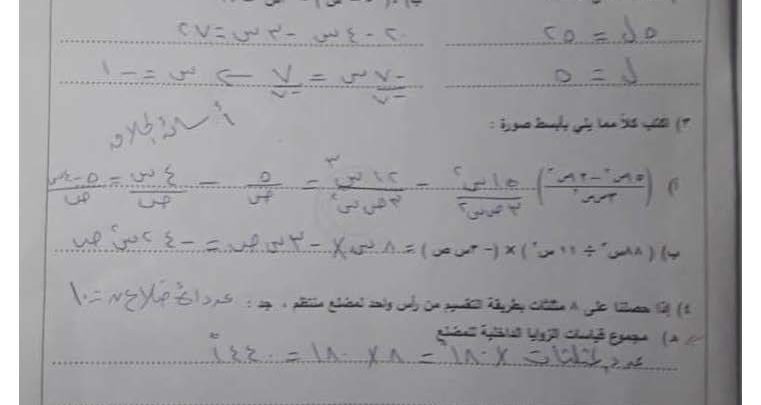 ٥ل = ٢٥
٢٠ - ٤س - ٣س = ٢٧
ل = ٥
-٧س / -٧ = ٧ / -٧ ← س = -١
٣) اكتب كلاً مما يلي بأبسط صورة :
أ) (١٥س٢ - ١٢س٣ / ٣ص س٢) ١٥س٢ / ٣ص س٢ - ١٢س٣ / ٣ص س٢ = ٥ / ص - ٤س / ص = ٥ - ٤س / ص
ب) ( ٨٨س٢ ÷ ١١ س ) × ( - ٣س ص ) = ٨س × - ٣س ص = - ٢٤س٢ ص
٤) إذا حصلنا على ٨ مثلثات بطريقة التقسيم من رأس واحد لمضلع منتظم ، جد : عدد أضلاع ن = ١٠
مجموع قياسات الزوايا الداخلية للمضلع
عدد المثلثات × ١٨٠ = ٨ × ١٨٠ = ١٤٤٠°